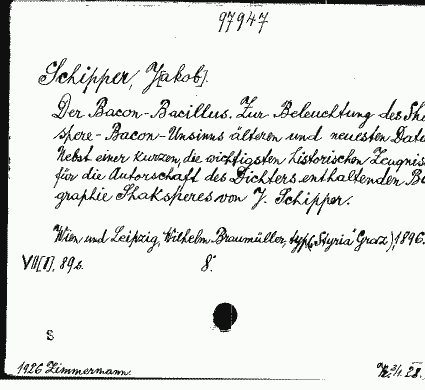 97947
Schipper, J[akob].
Der Bacon-Bacillus. Zur Beleuchtung des Sha
spere-Bacon-Unsinns älteren und neuesten Datu
Nebst einer kurzen, die wichtigsten historischen Zeugnis
für die Autorschaft des Dichters enthaltenden Bi
graphie Shaksperes von J. Schipper.
Wien und Leipzig, Wilhelm Braumüller, typ. „Styria“ Graz), 1896.
VII[I], 89 s. 8°.
S
1926 Zimmermann.